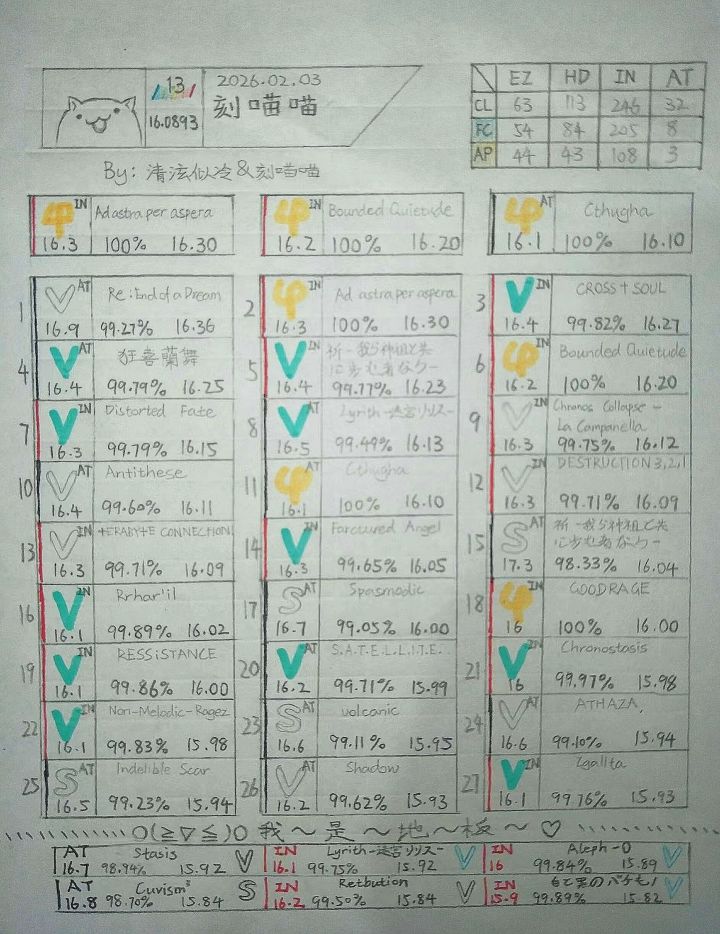 13
16.0893
2026.02.03
刻喵喵
EZ HD IN AT
CL 63 113 246 32
FC 54 84 205 8
AP 44 43 108 3
By: 清泫似冷&刻喵喵
φ IN Ad astra per aspera
16.3 100% 16.30
φ IN Bounded Quietude
16.2 100% 16.20
φ AT Cthugha
16.1 100% 16.10
1 V AT Re:End of a Dream
16.9 99.27% 16.36
2 φ IN Ad astra per aspera
16.3 100% 16.30
3 V IN CROSS+SOUL
16.4 99.82% 16.27
4 V AT 狂喜蘭舞
16.4 99.79% 16.25
5 V IN 祈-我ら神祖と共
に歩む者なり-
16.4 99.77% 16.23
6 φ IN Bounded Quietude
16.2 100% 16.20
7 V IN Distorted Fate
16.3 99.79% 16.15
8 V AT Lyrith-迷宮リリス-
16.5 99.49% 16.13
9 V IN Chronos Collapse -
La Campanella
16.3 99.75% 16.12
10 V AT Antithese
16.4 99.60% 16.11
11 φ AT Cthugha
16.1 100% 16.10
12 V IN DESTRUCTION 3,2,1
16.3 99.71% 16.09
13 V IN TERABYTE CONNECTION
16.3 99.71% 16.09
14 V IN Farctured Angel
16.3 99.65% 16.05
15 S AT 祈-我ら神祖と共
に歩む者なり-
17.3 98.33% 16.04
16 V IN Rrhar'il
16.1 99.89% 16.02
17 S AT Spasmodic
16.7 99.05% 16.00
18 φ IN GOODRAGE
16 100% 16.00
19 V IN RESSiSTANCE
16.1 99.86% 16.00
20 V AT S.A.T.E.L.L.I.T.E.
16.2 99.71% 15.99
21 V IN Chronostasis
16 99.97% 15.98
22 V IN Non-Melodic-Ragez
16.1 99.83% 15.98
23 S AT volcanic
16.6 99.11% 15.95
24 V AT ATHAZA
16.6 99.10% 15.94
25 S AT Indelible Scar
16.5 99.23% 15.94
26 V AT Shadow
16.2 99.62% 15.93
27 V IN Igallta
16.1 99.76% 15.93
O(≧▽≦)O 我～是～地～板～♡
AT Stasis
16.7 98.94% 15.92 V
IN Lyrith-迷宮リリス-
16.1 99.75% 15.92 V
IN Aleph-0
16 99.84% 15.89 V
AT Cuvism³
16.8 98.70% 15.84 S
IN Retbution
16.2 99.50% 15.84 V
IN 白と黒のバケモノ
15.9 99.89% 15.82 V